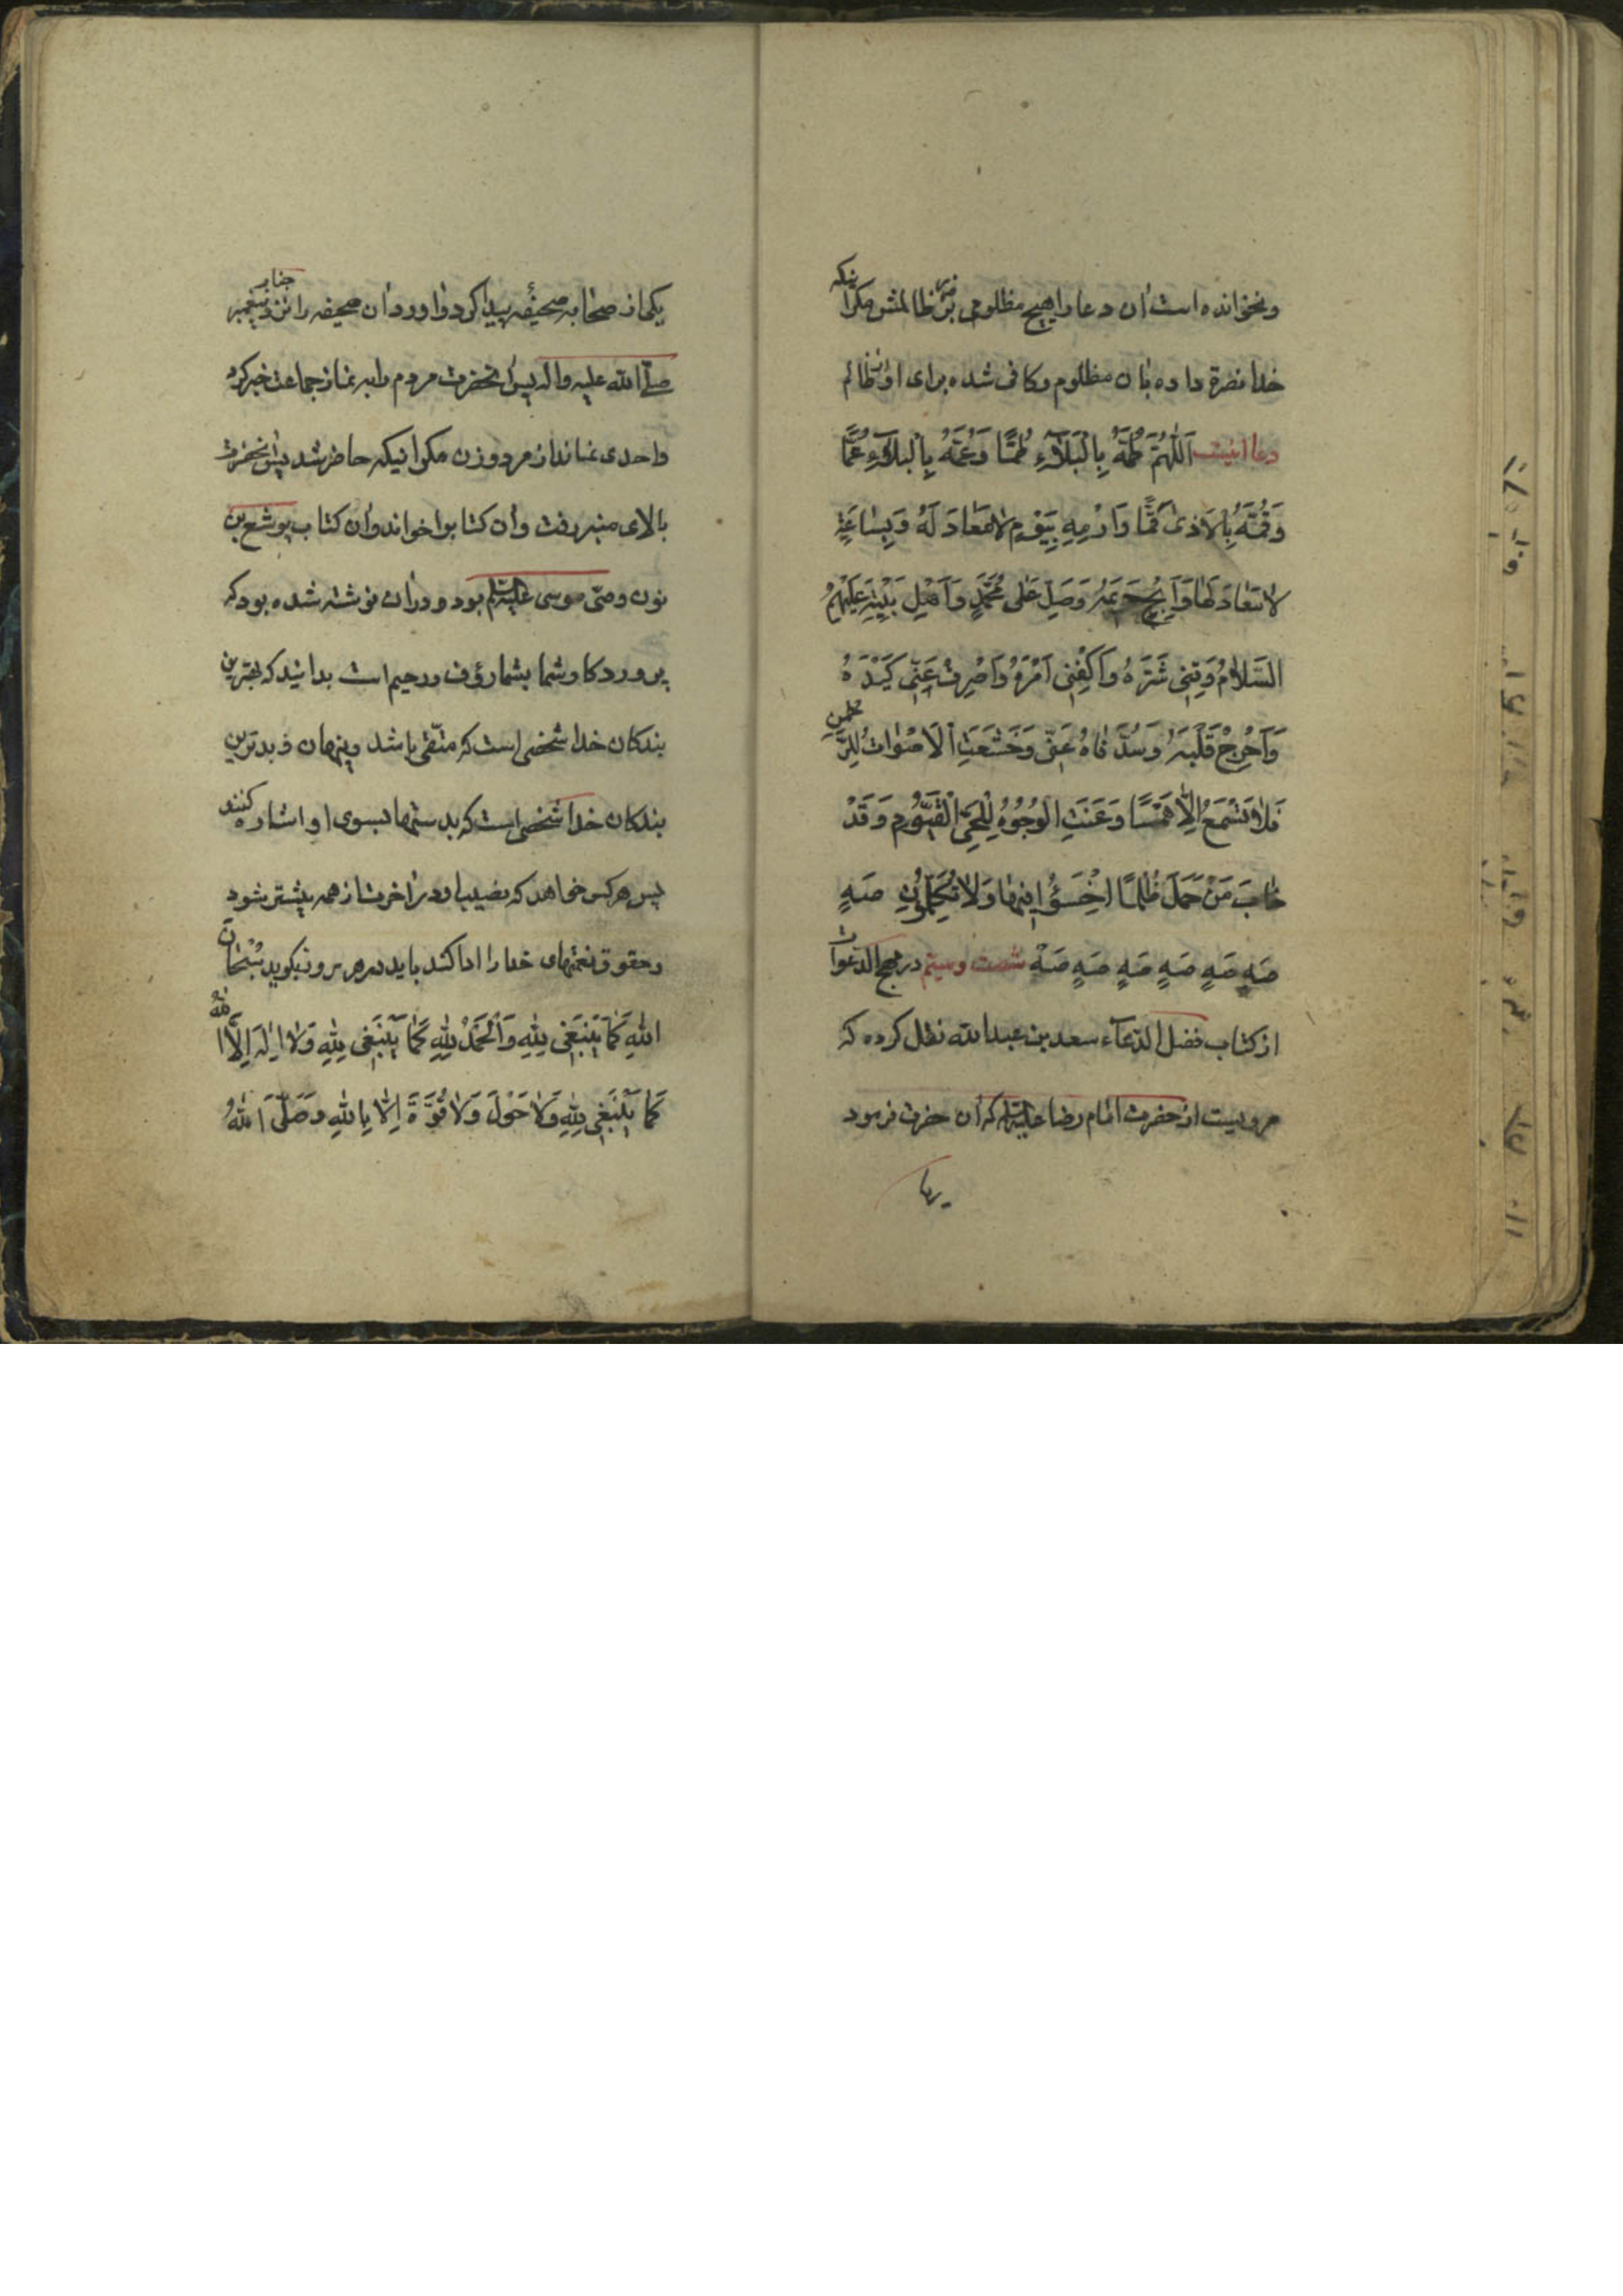 ونخوانده است آن دعا را هیچ مظلومی بر ضرر ظالمش مکر اینکه
خدا نصرة داده بان مظلوم وکافی شده برای او از ظالم
دعا اینست اَللّٰهُمَّ طُمَّهُ بِالْبَلَآءِ طَمًّا وَعُمَّهُ بِالْبَلَآءِ عَمًّا
وَقُمَّهُ بِالْاَذىٰ قَمًّا وَارْمِهِ بِيَوْمٍ لا مَعَادَ لَهُ وَبِسٰاعَةٍ
لا مَرَدَّ لَهٰا وَاَبِحْ حَرِيمَهُ وَصَلِّ عَلىٰ مُحَمَّدٍ وَاَهْلِ بَيْتِهِ عَلَيْهِمُ
السَّلٰامُ وَقِنِى شَرَّهُ وَاَكْفِنِى اَمْرَهُ وَاصْرِفْ عَنِّى كَيْدَهُ
وَاَحْرِجْ قَلْبَهُ وَسُدَّ فٰاهُ عَنِّى وَخَشَعَتِ الْاَصْوٰاتُ لِلرَّحْمٰنِ
فَلٰا تَسْمَعُ اِلّٰا هَمْسًا وَعَنَتِ الْوُجُوهُ لِلْحَىِّ الْقَيُّومِ وَقَدْ
خٰابَ مَنْ حَمَلَ ظُلْمًا اِخْسَؤُا فِيهٰا وَلٰا تُكَلِّمُونِ صَهٍ
صَهٍ صَهٍ صَهٍ صَهٍ صَهٍ صَهْ شصت وسیّم در مهج الدّعوات
از کتاب فضل الدّعآء سعد بن عبدالله نقل کرده که
مرویست از حضرت امام رضا علیه السلام که آن حضرت فرمود
یکی از صحابه صحیفهٔ پیدا کرد واورد ان صحیفه را نزد جناب پیغمبر
صلّی الله علیه واله پس آنحضرت مردم را به نماز جماعت خبر کرد
واحدی نماند از مرد وزن مکر اینکه حاضر شد پس آنحضرت
بالای منبر رفت وآن کتاب را خواند وآن کتاب یوشع بن
نون وصّی موسی علیه السلام بود و در آن نوشته شده بود که
پروردکار شما بشما رؤف ورحیم است بدانید که بهترین
بندکان خدا شخصی است که متّقی باشد وپنهان و بدترین
بندکان خدا شخصی است که بدستها بسوی او اشاره کنند
پس هر کس خواهد که نصیب او در آخرت از همه بیشتر شود
وحقوق نعمتهای خدا را ادا کند باید در هر روز بکوید سُبْحٰانَ
اللّٰهِ كَمٰا يَنْبَغِى لِلّٰهِ وَالْحَمْدُ لِلّٰهِ كَمٰا يَنْبَغِى لِلّٰهِ وَلٰا اِلٰهَ اِلَّا اللّٰهُ
كَمٰا يَنْبَغِى لِلّٰهِ وَلٰا حَوْلَ وَلٰا قُوَّةَ اِلّٰا بِاللّٰهِ وَصَلَّى اللّٰهُ